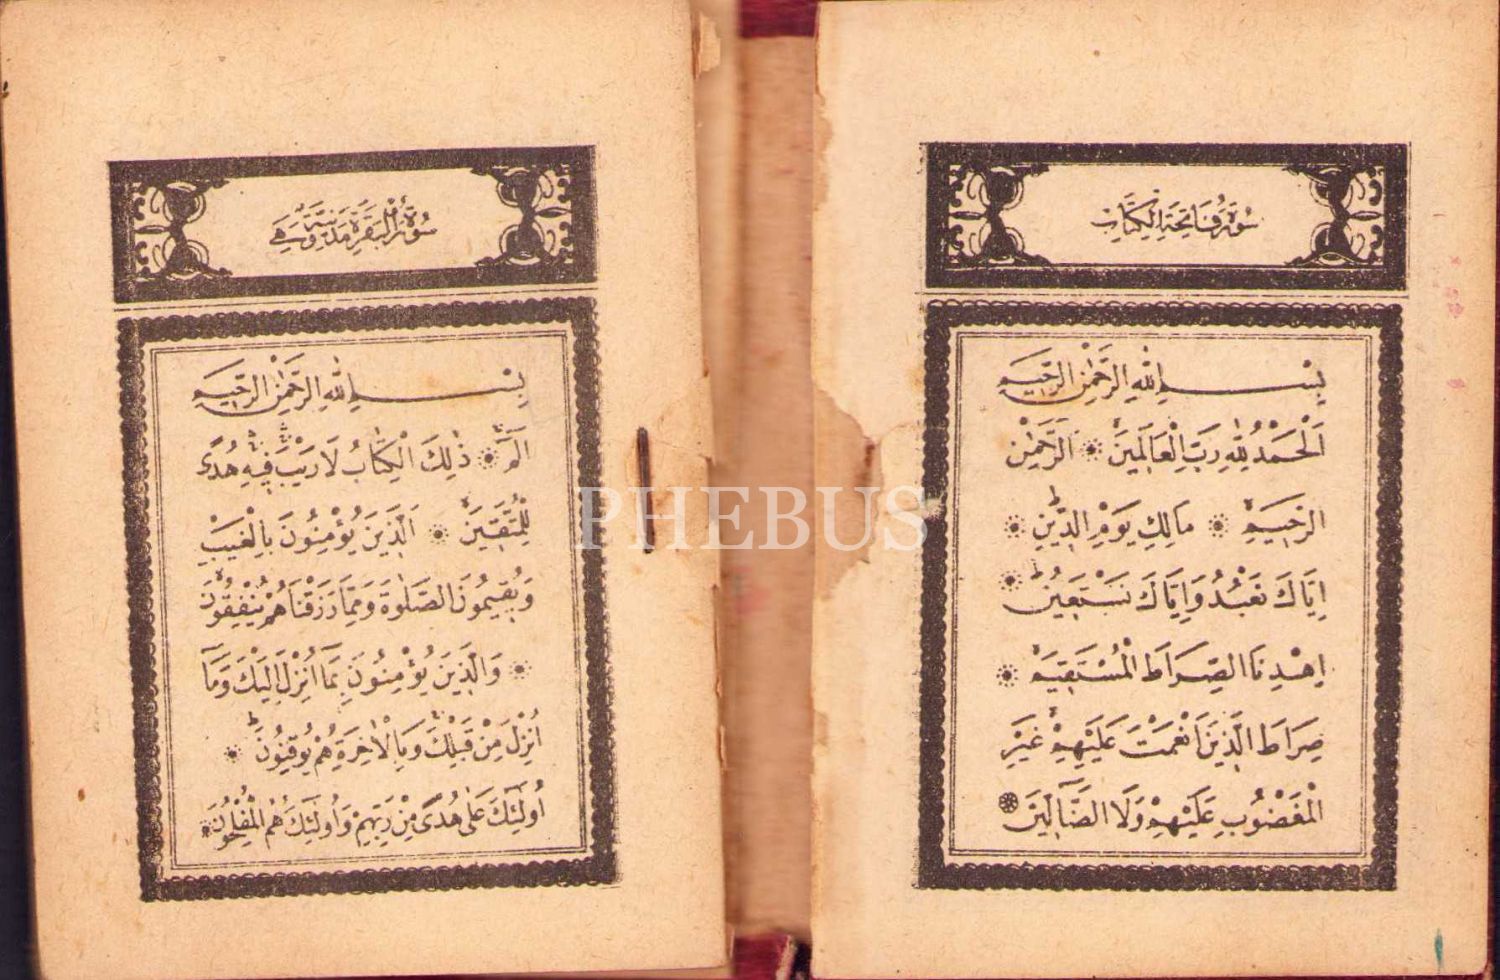 سُورَةُ فَاتِحَةِ الْكِتَابِ
بِسْمِ اللهِ الرَّحْمٰنِ الرَّحِيمِ
اَلْحَمْدُ لِلّٰهِ رَبِّ الْعَالَمِينَۙ الرَّحْمٰنِ
الرَّحِيمِۙ مَالِكِ يَوْمِ الدِّينِۜ
اِيَّاكَ نَعْبُدُ وَاِيَّاكَ نَسْتَعِينُۜ
اِهْدِنَا الصِّرَاطَ الْمُسْتَقِيمَۙ
صِرَاطَ الَّذِينَ اَنْعَمْتَ عَلَيْهِمْۙ غَيْرِ
الْمَغْضُوبِ عَلَيْهِمْ وَلَا الضَّٓالِّينَ
سُورَةُ الْبَقَرَةِ مَدَنِيَّةٌ وَهِيَ
بِسْمِ اللهِ الرَّحْمٰنِ الرَّحِيمِ
الٓمٓۚ ذٰلِكَ الْكِتَابُ لَا رَيْبَۛ فِيهِۛ هُدًى
لِلْمُتَّقِينَۙ اَلَّذِينَ يُؤْمِنُونَ بِالْغَيْبِ
وَيُقِيمُونَ الصَّلٰوةَ وَمِمَّا رَزَقْنَاهُمْ يُنْفِقُونَۙ
وَالَّذِينَ يُؤْمِنُونَ بِمَٓا اُنْزِلَ اِلَيْكَ وَمَٓا
اُنْزِلَ مِنْ قَبْلِكَۚ وَبِالْاٰخِرَةِ هُمْ يُوقِنُونَۜ
اُولٰٓئِكَ عَلٰى هُدًى مِنْ رَبِّهِمْ وَاُولٰٓئِكَ هُمُ الْمُفْلِحُونَ
PHEBUS